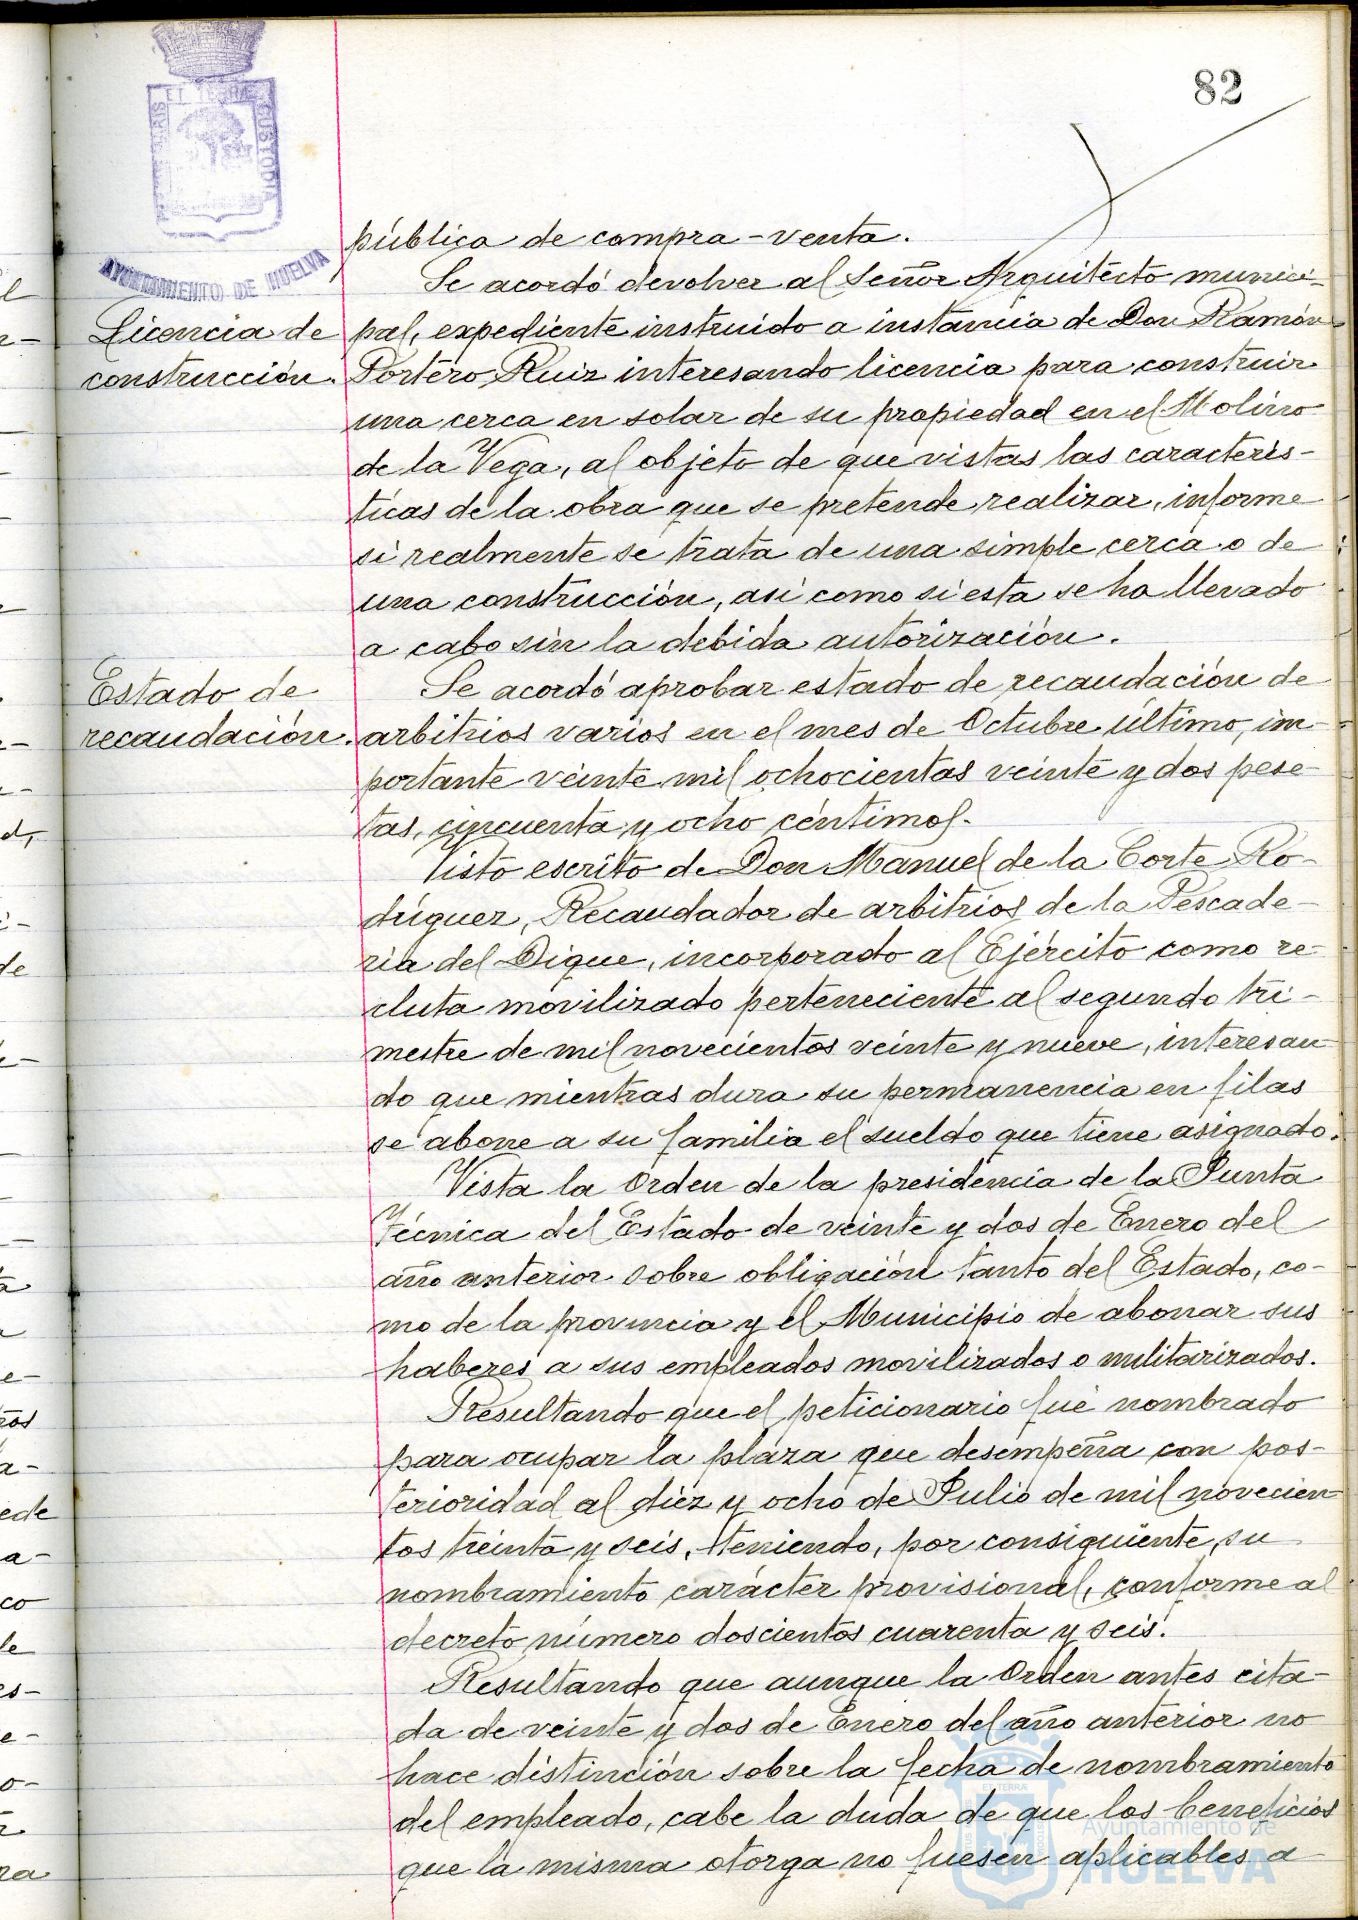 82
ET TERRÆ
MARIS
CUSTODIA
AYUNTAMIENTO DE HUELVA
pública de compra-venta.
Se acordó devolver al Señor Arquitecto munici-
Licencia de
construcción.
pal, expediente instruido a instancia de Don Ramón
Portero Ruiz interesando licencia para construir
una cerca en solar de su propiedad en el Molino
de la Vega, al objeto de que vistas las caracterís-
ticas de la obra que se pretende realizar, informe
si realmente se trata de una simple cerca o de
una construcción, así como si esta se ha llevado
a cabo sin la debida autorización.
Estado de
recaudación.
Se acordó aprobar estado de recaudación de
arbitrios varios en el mes de Octubre último, im-
portante veinte mil ochocientas veinte y dos pese-
tas, cincuenta y ocho céntimos.
Visto escrito de Don Manuel de la Corte Ro-
dríguez, Recaudador de arbitrios de la Pescade-
ría del Dique, incorporado al Ejército como re-
cluta movilizado perteneciente al segundo tri-
mestre de mil novecientos veinte y nueve, interesan-
do que mientras dura su permanencia en filas
se abone a su familia el sueldo que tiene asignado.
Vista la Orden de la presidencia de la Junta
Técnica del Estado de veinte y dos de Enero del
año anterior sobre obligación tanto del Estado, co-
mo de la provincia y el Municipio de abonar sus
haberes a sus empleados movilizados o militarizados.
Resultando que el peticionario fué nombrado
para ocupar la plaza que desempeña con pos-
terioridad al diez y ocho de Julio de mil novecien-
tos treinta y seis, teniendo, por consiguiente, su
nombramiento carácter provisional, conforme al
decreto número doscientos cuarenta y seis.
Resultando que aunque la Orden antes cita-
da de veinte y dos de Enero del año anterior no
hace distinción sobre la fecha de nombramiento
del empleado, cabe la duda de que los beneficios
que la misma otorga no fuesen aplicables a
Ayuntamiento de
HUELVA